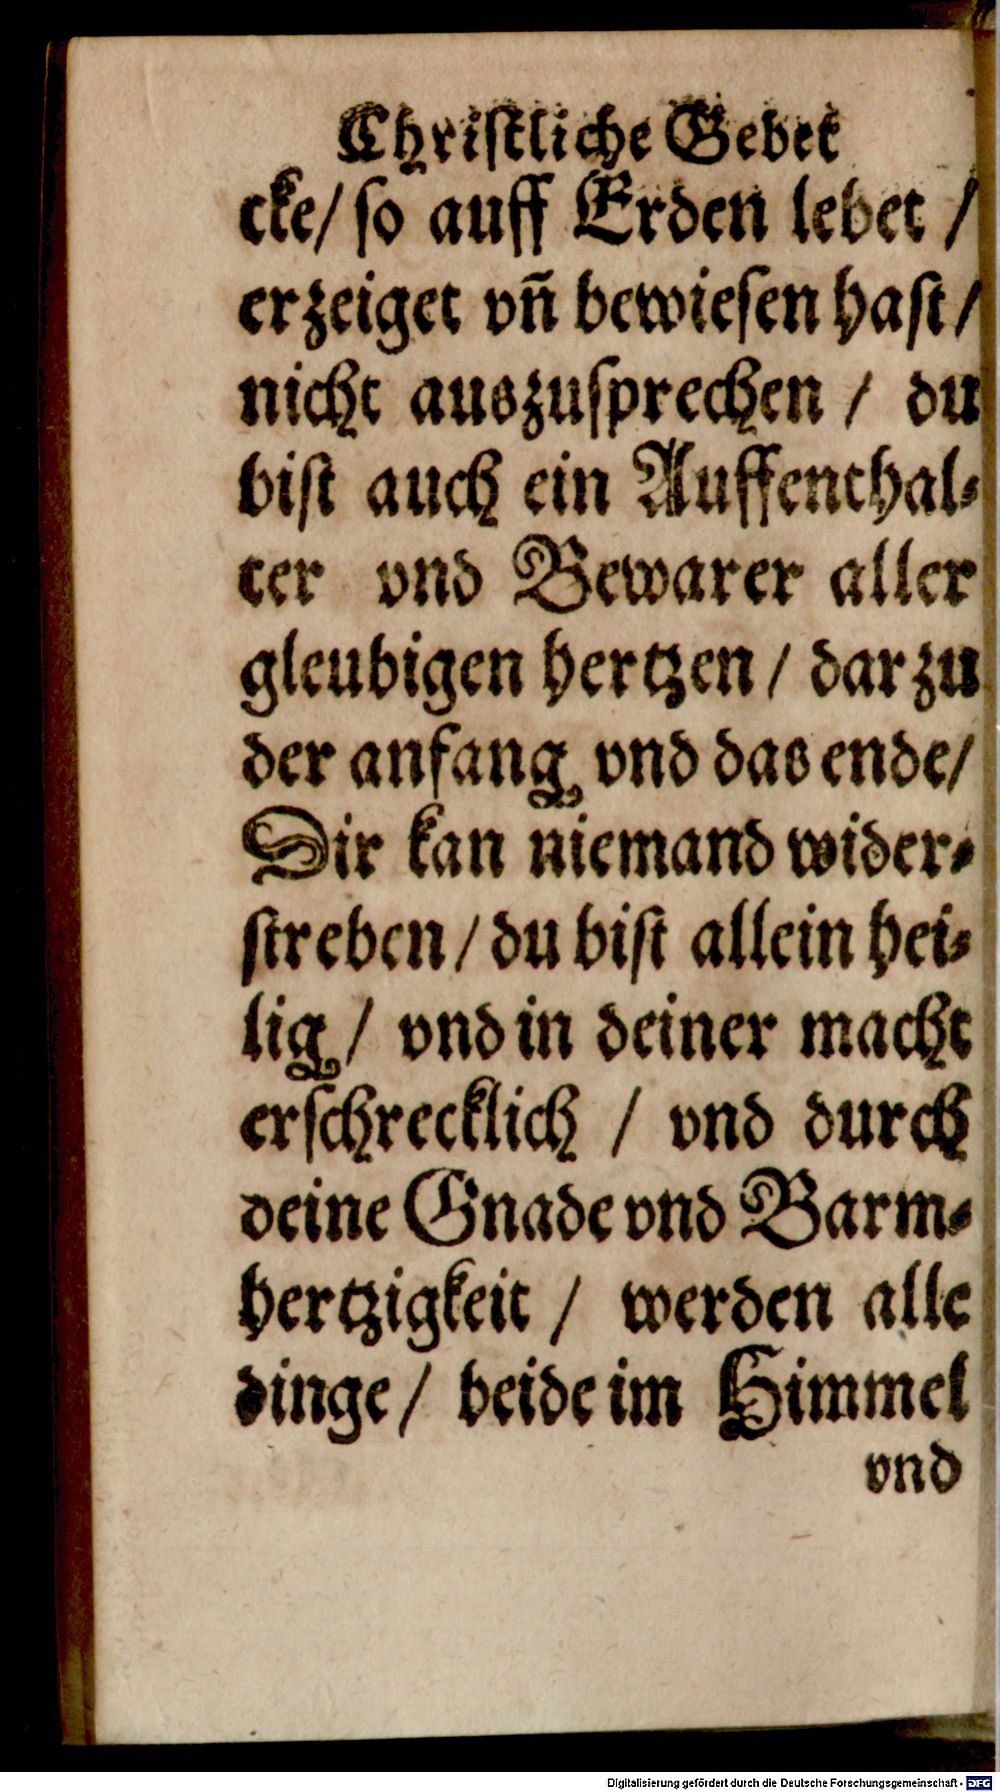 Christliche Gebet
cke/ so auff Erden lebet /
erzeiget vñ bewiesen hast/
nicht auszusprechen / du
bist auch ein Auffenthal-
ter vnd Bewarer aller
gleubigen hertzen / darzu
der anfang vnd das ende/
Dir kan niemand wider-
streben / du bist allein hei-
lig / vnd in deiner macht
erschrecklich / vnd durch
deine Gnade vnd Barm-
hertzigkeit / werden alle
dinge / beide im Himmel
vnd
Digitalisierung gefördert durch die Deutsche Forschungsgemeinschaft - DFG